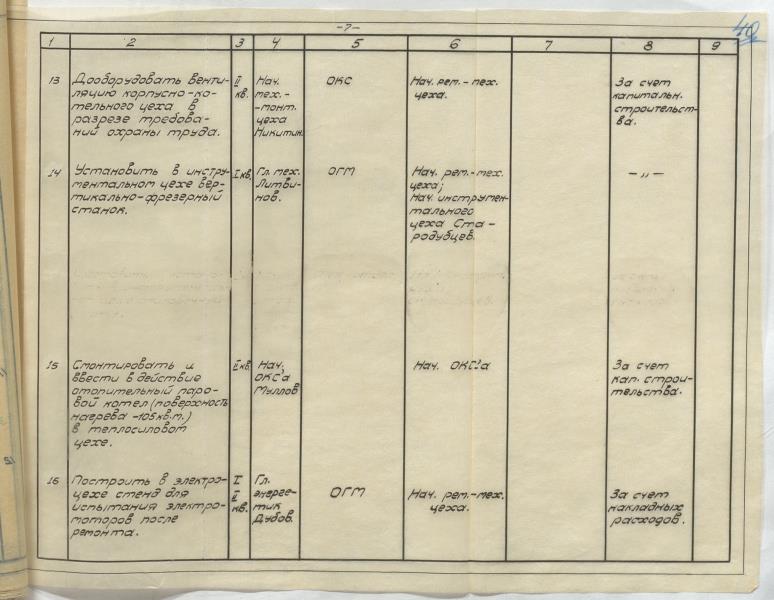 -7-
40
1 2 3 4 5 6 7 8 9
13 Дооборудовать венти-
ляцию корпусно-ко-
тельного цеха в
разрезе требова-
ний охраны труда.
II
кв.
Нач.
мех.-
-монт.
цеха
Никитин.
ОКС
Нач. рем.-мех.
цеха.
За счет
капитальн.
строительст-
ва.
14 Установить в инстру-
ментальном цехе вер-
тикально-фрезерный
станок.
I кв.
Гл. мех.
Литви-
нов.
ОГМ
Нач. рем.-мех.
цеха;
Нач. инструмен-
тального
цеха Ста-
родубцев.
-"-
15 Смонтировать и
ввести в действие
отопительный паро-
вой котел (поверхность
нагрева -105 кв.м.)
в теплосиловом
цехе.
II кв.
Нач.
ОКС'а
Муллов
Нач. ОКС'а
За счет
кап. строи-
тельства.
16 Построить в электро-
цехе стенд для
испытания электро-
моторов после
ремонта.
I
II
кв.
Гл.
энерге-
тик
Дубов.
ОГМ
Нач. рем.-мех.
цеха.
За счет
накладных
расходов.